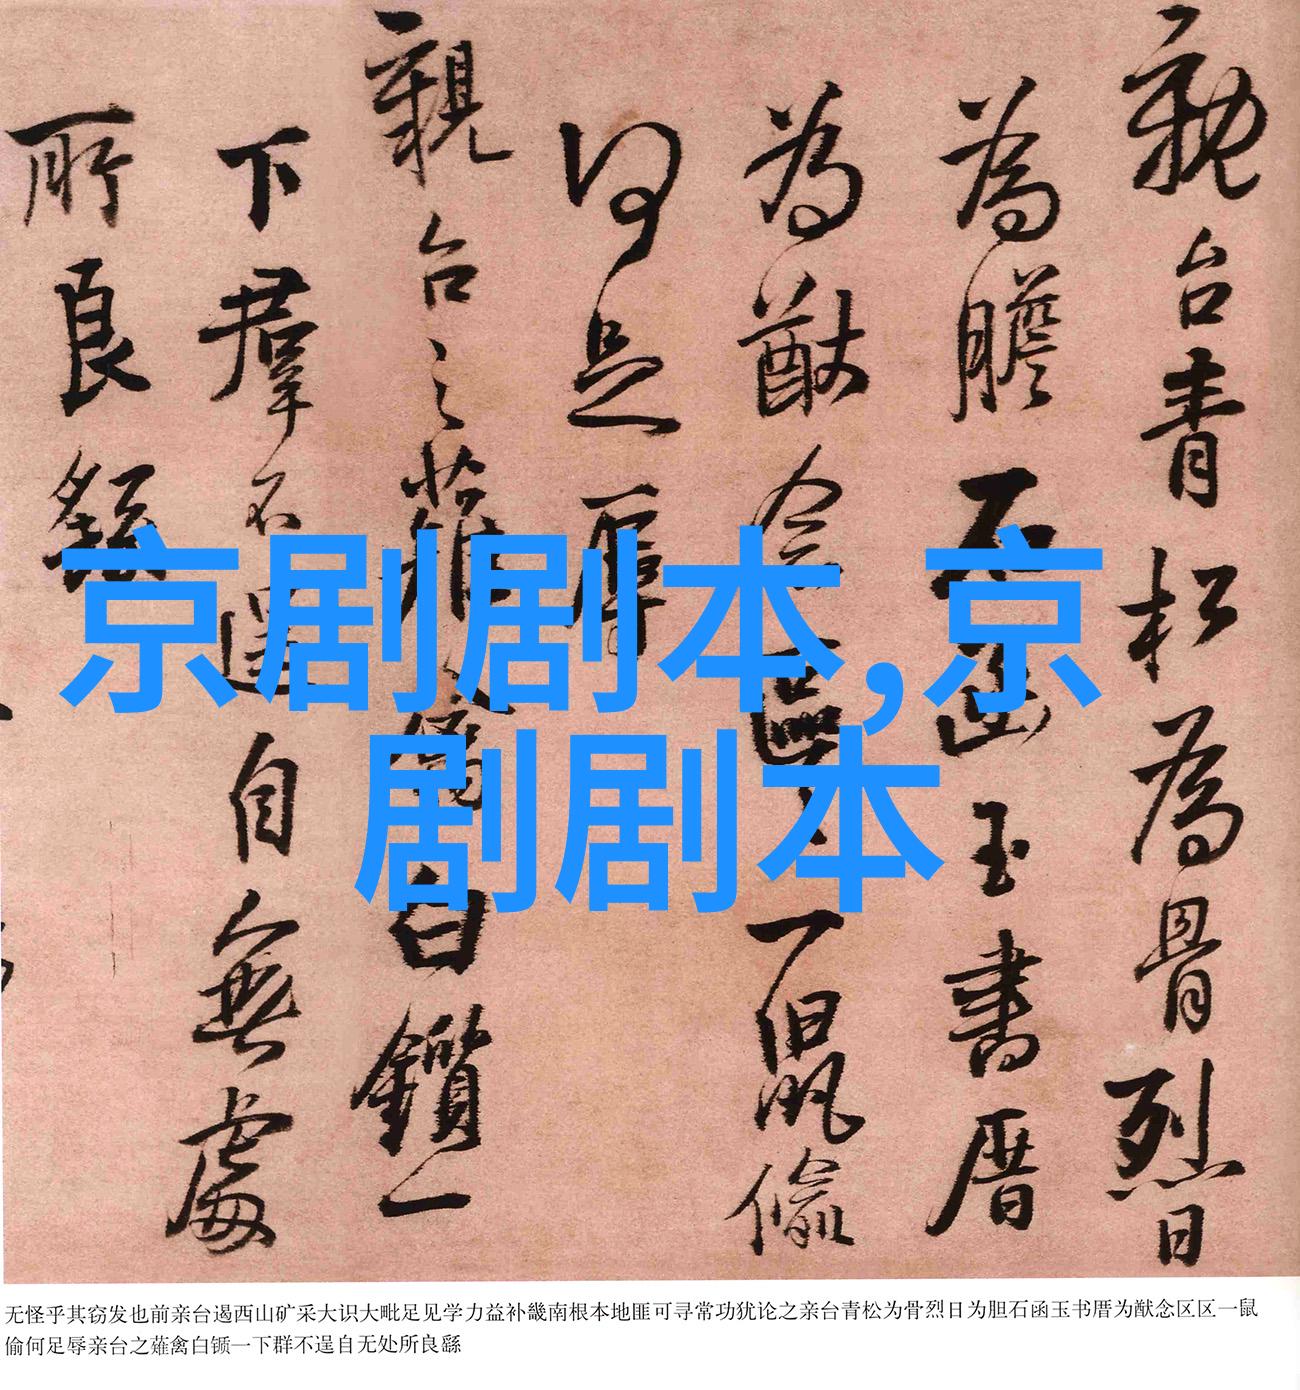 親台青松為骨烈日
為膽石函玉書厝
為猷念區區一鼠偷
何足辱
親台之薙禽白鑕一
下羣不逞自無處
所良繇
京剧剧本,京
剧剧本
无怪乎其窃发也前亲台遏西山矿采大识大毗足见学力益补畿南根本地匪可寻常功犹论之亲台青松为骨烈日为胆石函玉书厝为猷念区区一鼠
偷何足辱亲台之薙禽白锧一下群不逞自无处所良繇